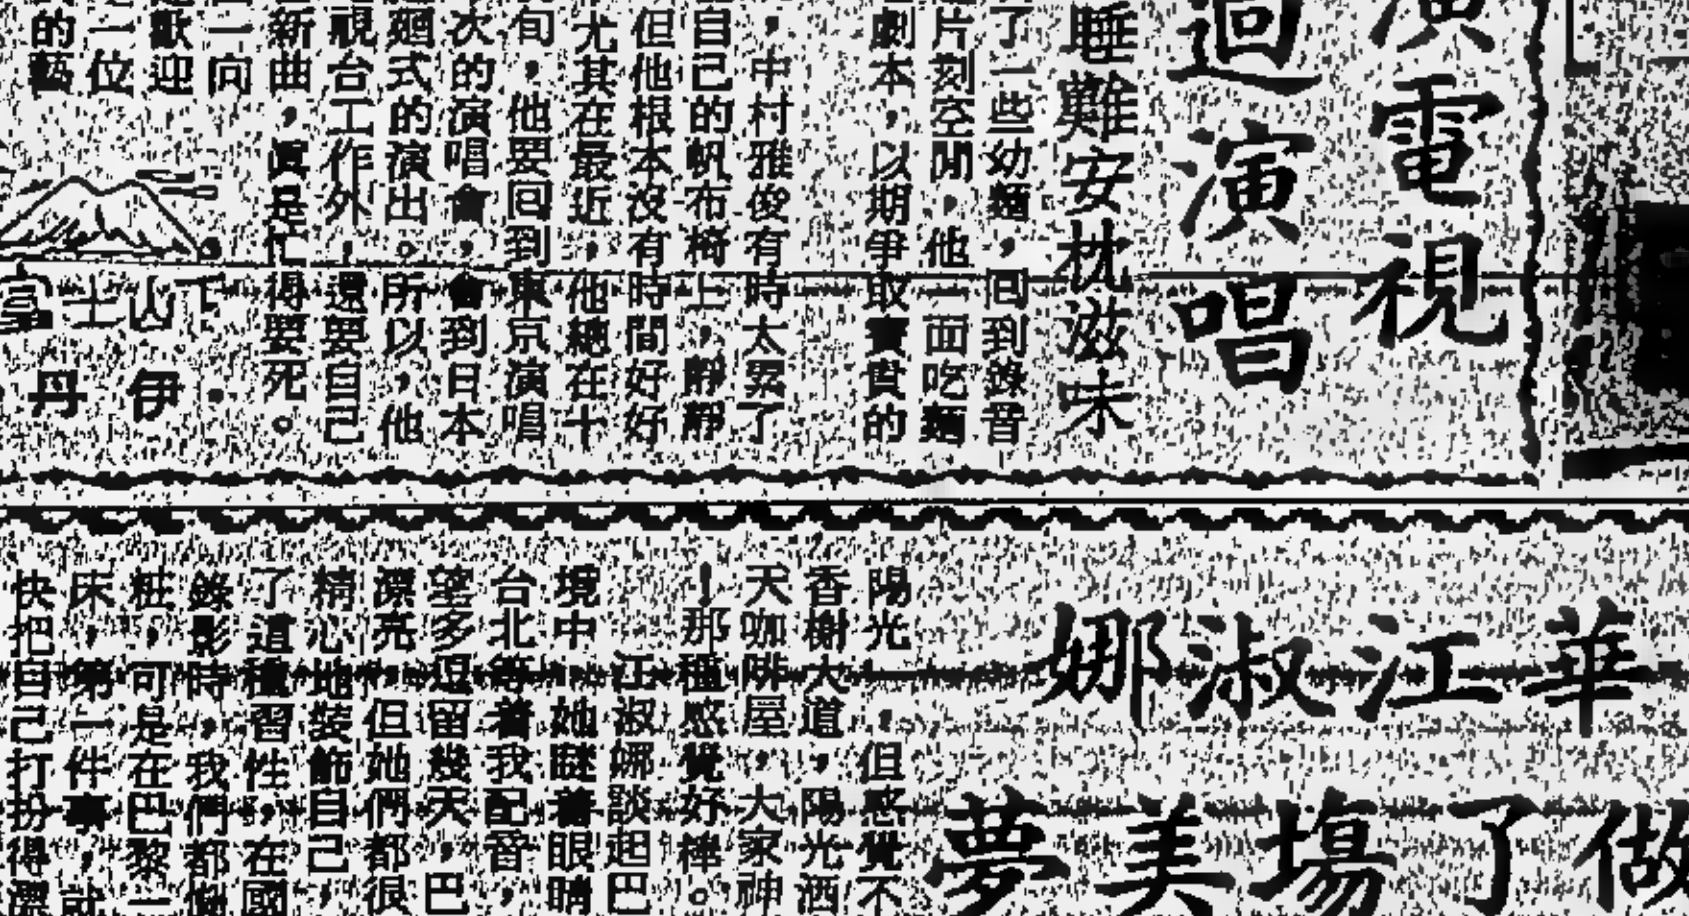 演電視
迴演唱
睡難安枕滋味
了一些幼麵，回到錄音
片刻空閒，他一面吃麵
劇本，以期爭取寶貴的
，中村雅俊有時太累了
自己的帆布椅上，靜靜
但他根本沒有時間好好
尤其在最近，他總在十
旬，他要回到東京演唱
次的演唱會，會到日本
廻式的演出。所以，他
視台工作外，還要自己
新曲，真是忙得要死。
一向
歡迎
一位
的藝
富士山下
伊丹
華江淑娜
做了場美夢
陽光—，但感覺不
香榭大道，陽光洒
天咖啡屋，大家神
！那種感覺好棒。
江淑娜談起巴
境中，她瞇着眼睛
台北等着我配音，
望多逗留幾天，巴
漂亮，但她們都很
精心地裝飾自己，
了這種習性，在國
錄影時，我們都
粧，可是在巴黎一
床，第一件事，就
快把自己打扮得漂